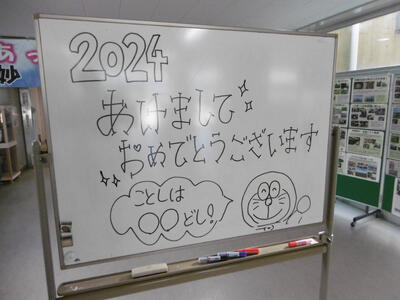 2024
あけまして
おめでとうございます
ことしは
○○どし!
あっ
妙